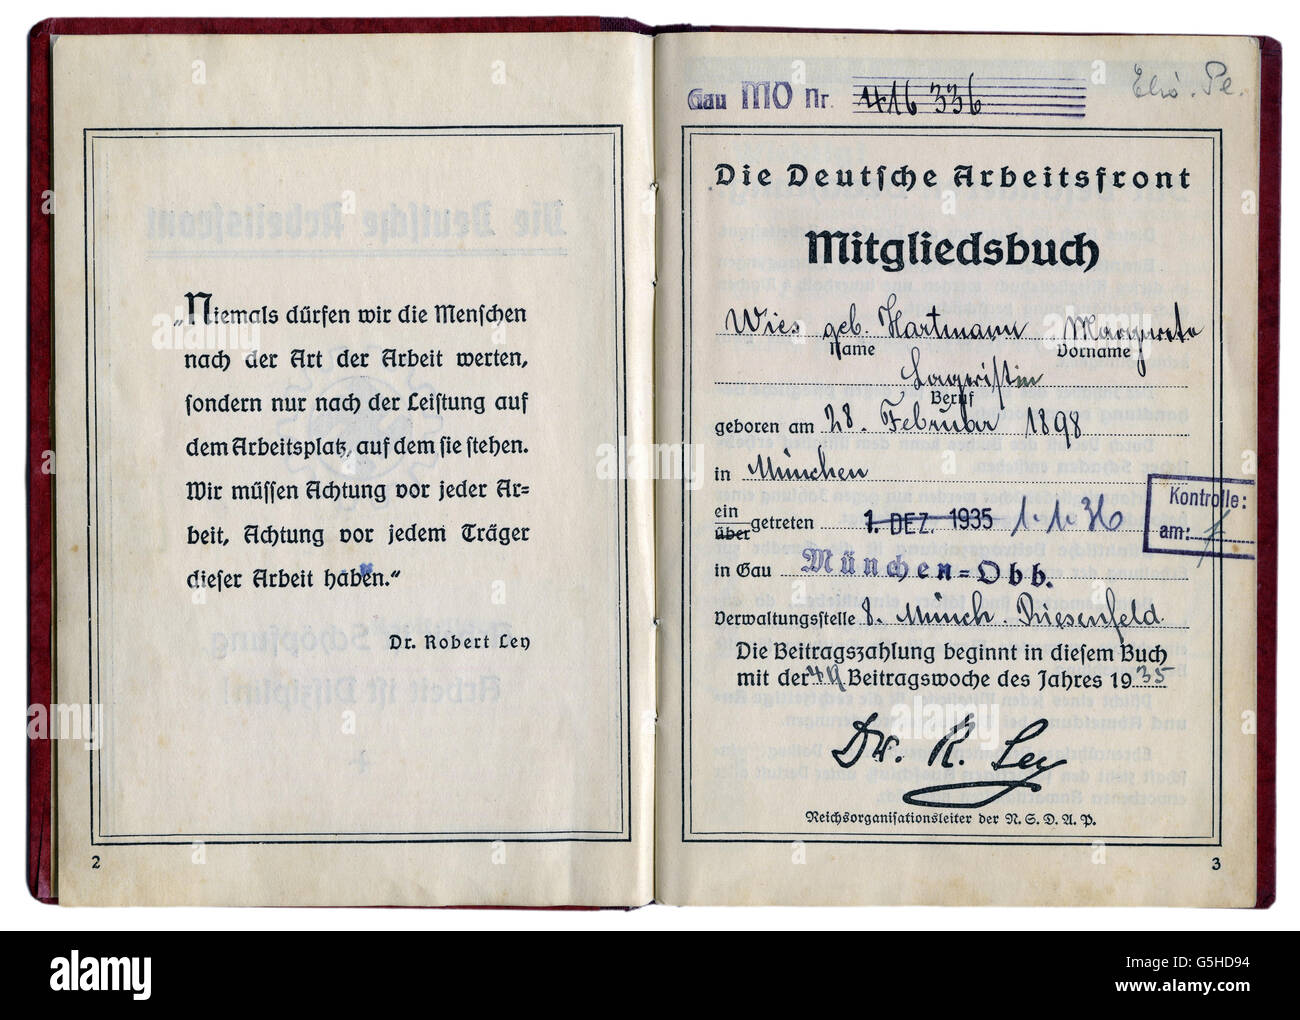 „Niemals dürfen wir die Menschen
nach der Art der Arbeit werten,
sondern nur nach der Leistung auf
dem Arbeitsplatz, auf dem sie stehen.
Wir müssen Achtung vor jeder Ar=
beit, Achtung vor jedem Träger
dieser Arbeit haben.“
Dr. Robert Ley
2
Gau MO Nr. 416 336
Die Deutsche Arbeitsfront
Mitgliedsbuch
Wies geb. Hartmann Margarete
Name Vorname
Lageristin
Beruf
geboren am 28. Februar 1898
in München
Kontrolle:
am:
ein
über getreten 1. DEZ. 1935 1.1.36
in Gau München=Obb.
Verwaltungsstelle 8. Münch. Riesenfeld
Die Beitragszahlung beginnt in diesem Buch
mit der 49. Beitragswoche des Jahres 1935
Dr. R. Ley
Reichsorganisationsleiter der N.S.D.A.P.
3
alamy
a
alamy
a
alamy
Image ID: G5HD94
www.alamy.com